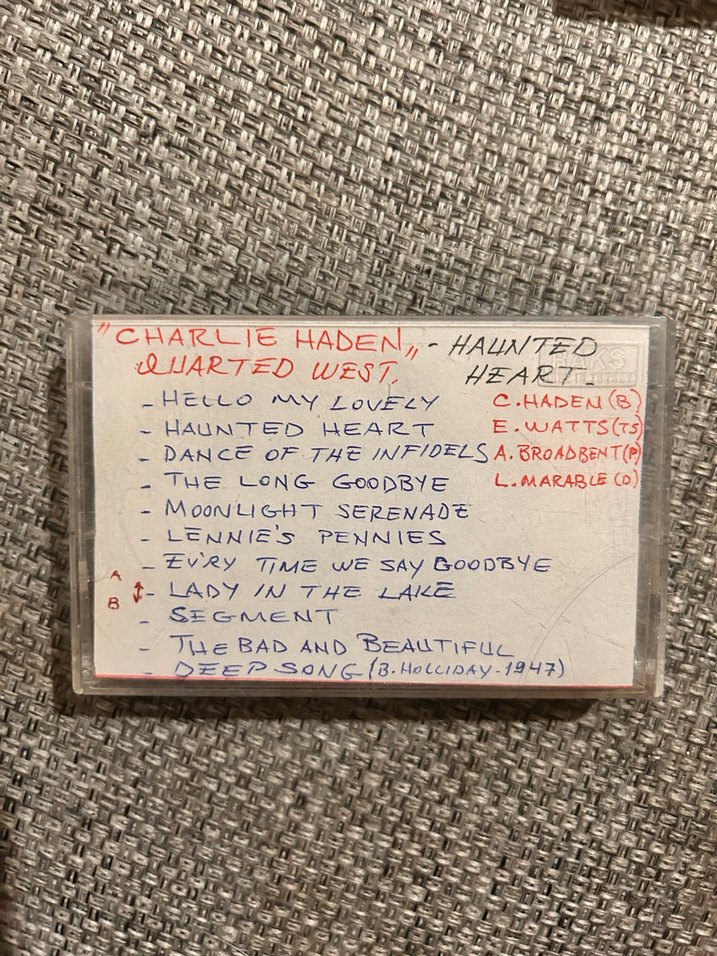 "CHARLIE HADEN„ - HAUNTED
QUARTED WEST. HEART-
- HELLO MY LOVELY C. HADEN (B)
- HAUNTED HEART E. WATTS (TS)
- DANCE OF THE INFIDELS A. BROADBENT (P)
- THE LONG GOODBYE L. MARABLE (D)
- MOONLIGHT SERENADE
- LENNIE'S PENNIES
- EV'RY TIME WE SAY GOODBYE
A
B ↕ - LADY IN THE LAKE
- SEGMENT
- THE BAD AND BEAUTIFUL
- DEEP SONG (B. HOLLIDAY - 1947)